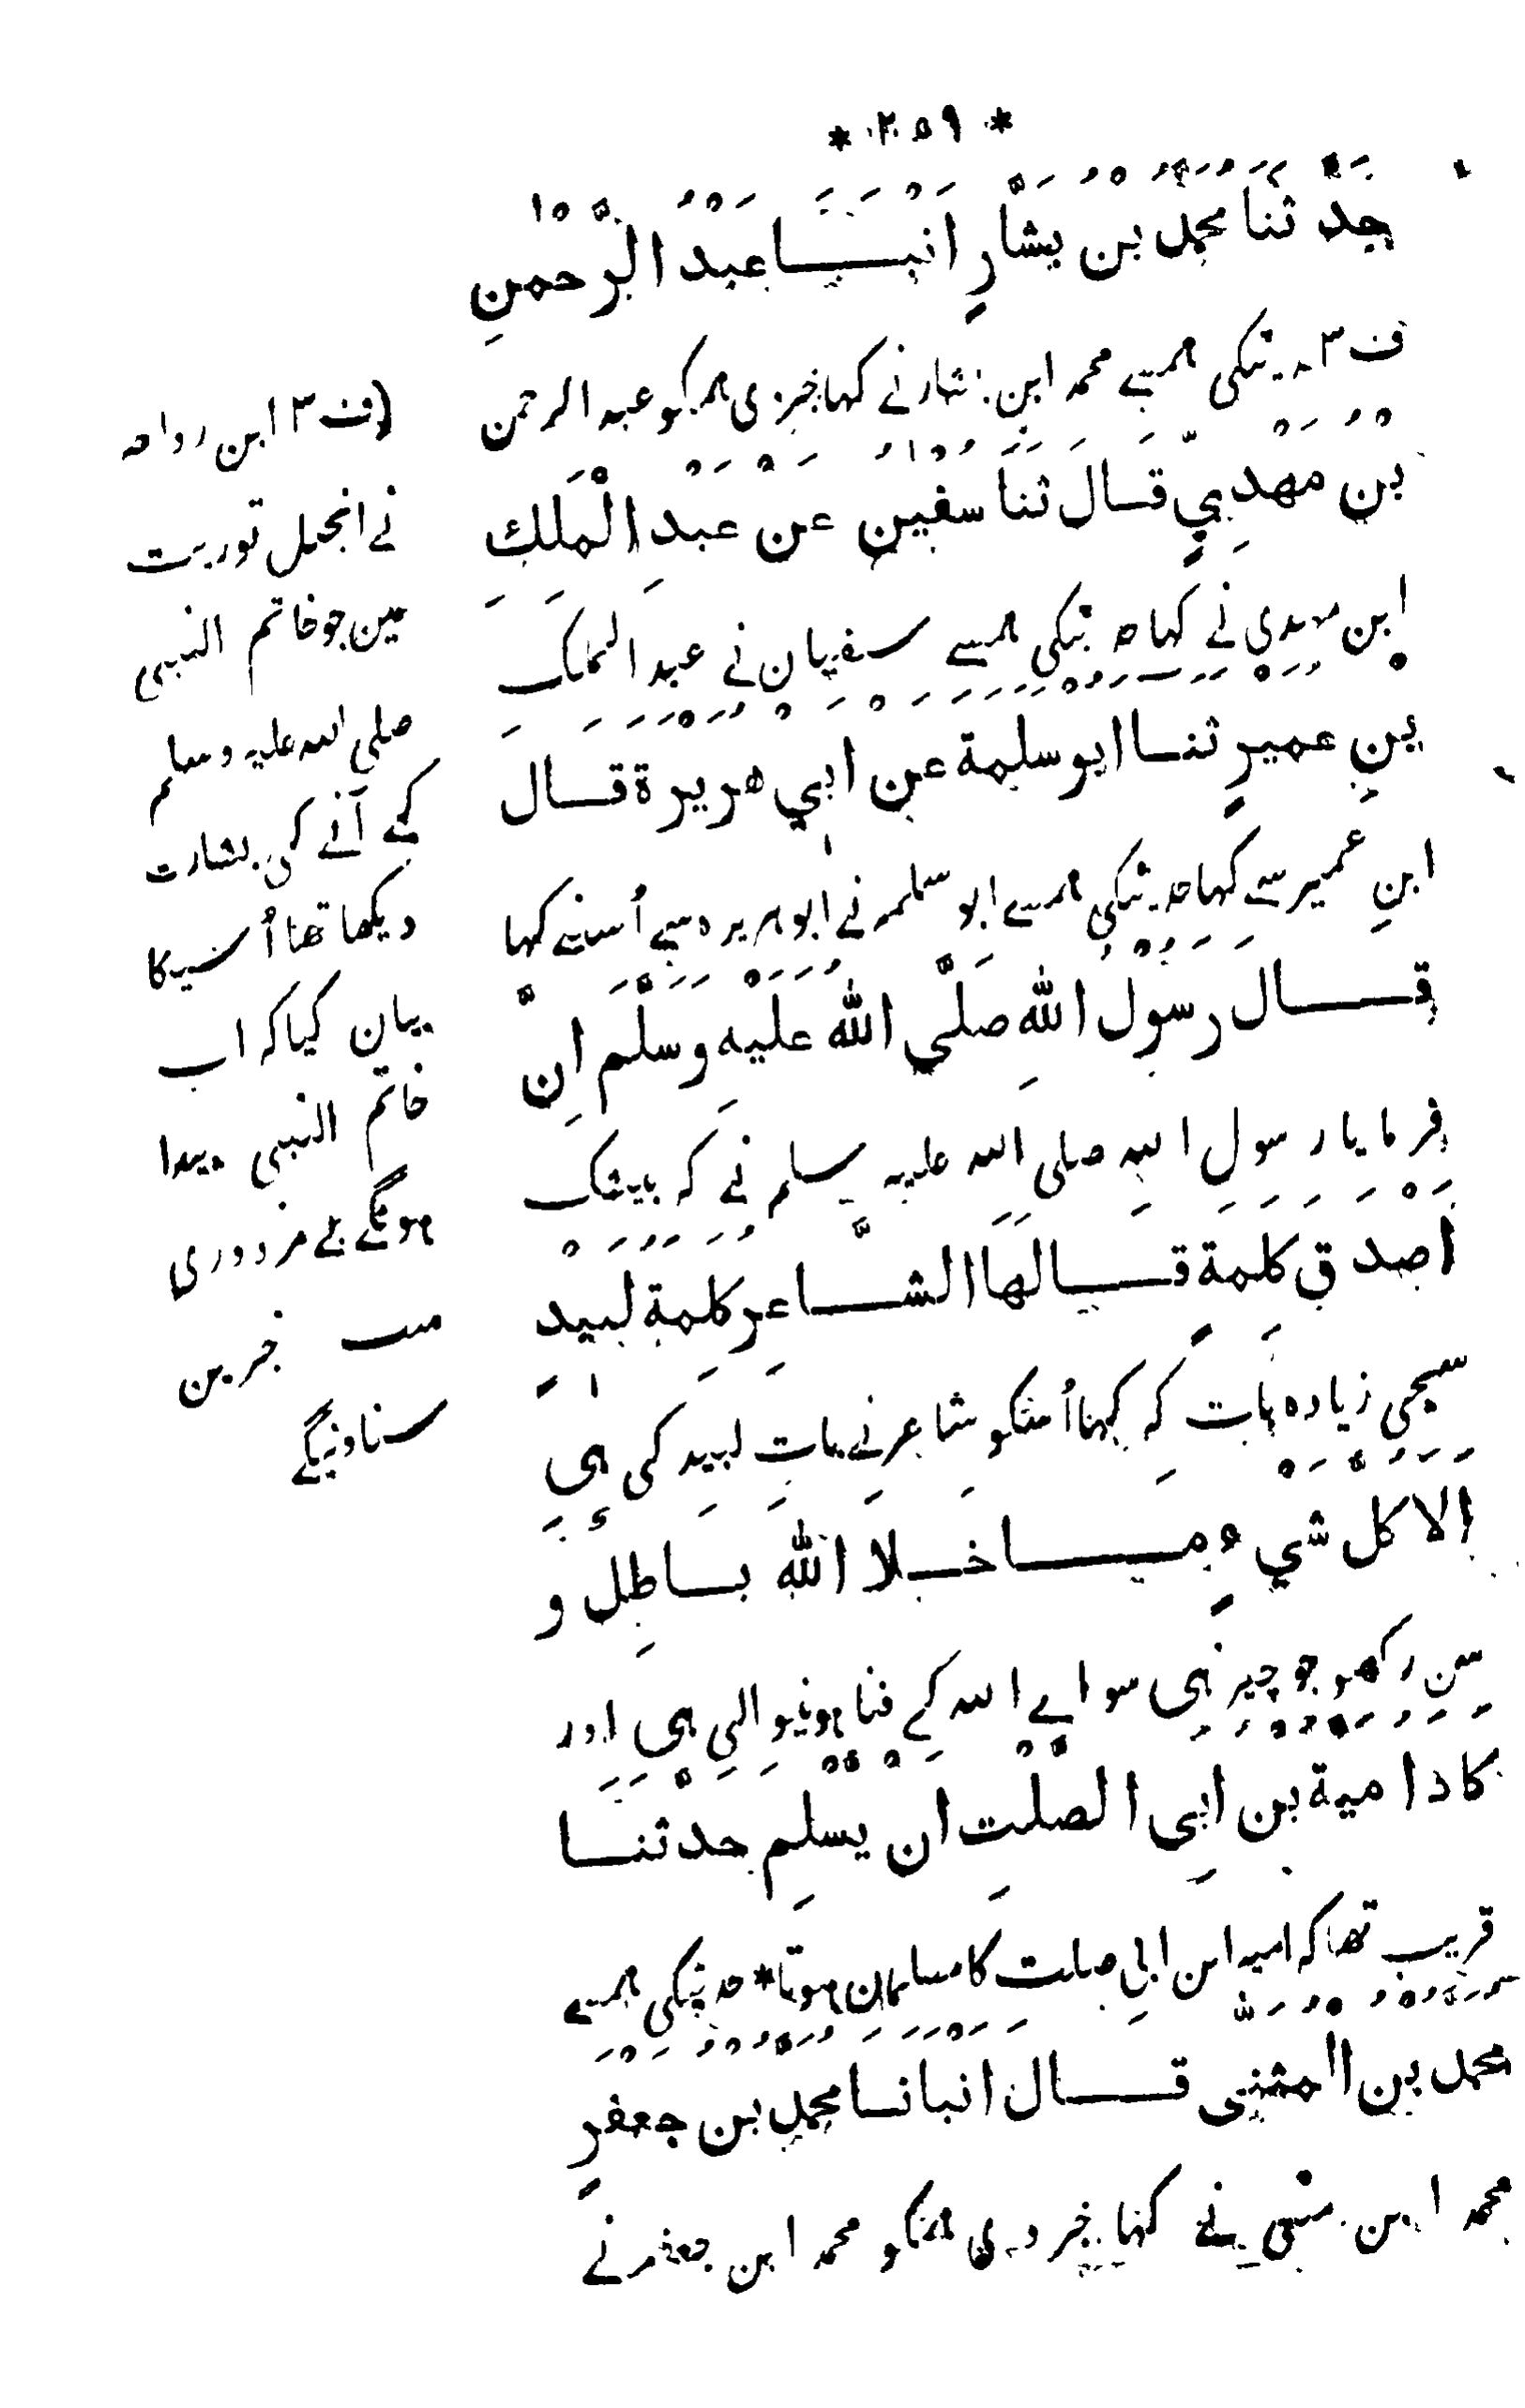 * ٢٥٩ *
حَدَّثَنَا مُحَمَّدُ بْنُ بَشَّارٍ اَنْبَــا عَبْدُ الرَّحْمٰنِ
ف ٣ حدیثکی ہمسے محمد ابن بشار نے کہا خبر دی ہمکو عبد الرحمن
بْنُ مَهْدِيٍّ قَــالَ ثَنَا سُفْيٰنُ عَنْ عَبْدِ الْمَلِكِ
ابن مہدی نے کہا حدیثکی ہمسے سفیان نے عبد الملک
بْنِ عُمَيْرٍ ثَنَــا اَبُوْ سَلَمَةَ عَنْ اَبِيْ هُرَيْرَةَ قَــالَ
ابنِ عمیر سے کہا حدیثکی ہمسے ابو سلمہ نے ابو ہریرہ سے اُسنے کہا
قَــالَ رَسُوْلُ اللّٰهِ صَلَّي اللّٰهُ عَلَيْهِ وَسَلَّمَ اِنَّ
فرمایا رسول اللہ صلی اللہ علیہ وسلم نے کہ بیشک
اَصْدَقَ كَلِمَةٍ قَــالَهَا الشَّــاعِرُ كَلِمَةُ لَبِيْدٍ
سچی زیادہ بات کہ کہا اُسکو شاعر نے بات لبید کی ہی
اَلَا كُلُّ شَيْءٍ مَــا خَــلَا اللّٰهَ بَــاطِلٌ وَ
سن رکھو جو چیز ہی سواے اللہ کے فنا ہونیوالی ہی اور
كَادَ اُمَيَّةُ بْنُ اَبِي الصَّلْتِ اَنْ يُسْلِمَ حَدَّثَنَــا
قریب تھا کہ امیہ ابن ابی صلت کا مسلمان ہوتا * حدیثکی ہمسے
مُحَمَّدُ بْنُ الْمُثَنّٰى قَــالَ اَنْبَانَــا مُحَمَّدُ بْنُ جَعْفَرٍ
محمد ابن مثنی نے کہا خبر دی ہمکو محمد ابن جعفر نے
(ف ٣ ابن رواحہ
نے انجیل توریت
مین جو خاتم النبی
صلی اللہ علیہ وسلم
کے آنے کی بشارت
دیکھا تھا اُسیکا
بیان کیا کہ اب
خاتم النبی پیدا
ہونگے بے مزدوری
سب خبرین
سناوینگے